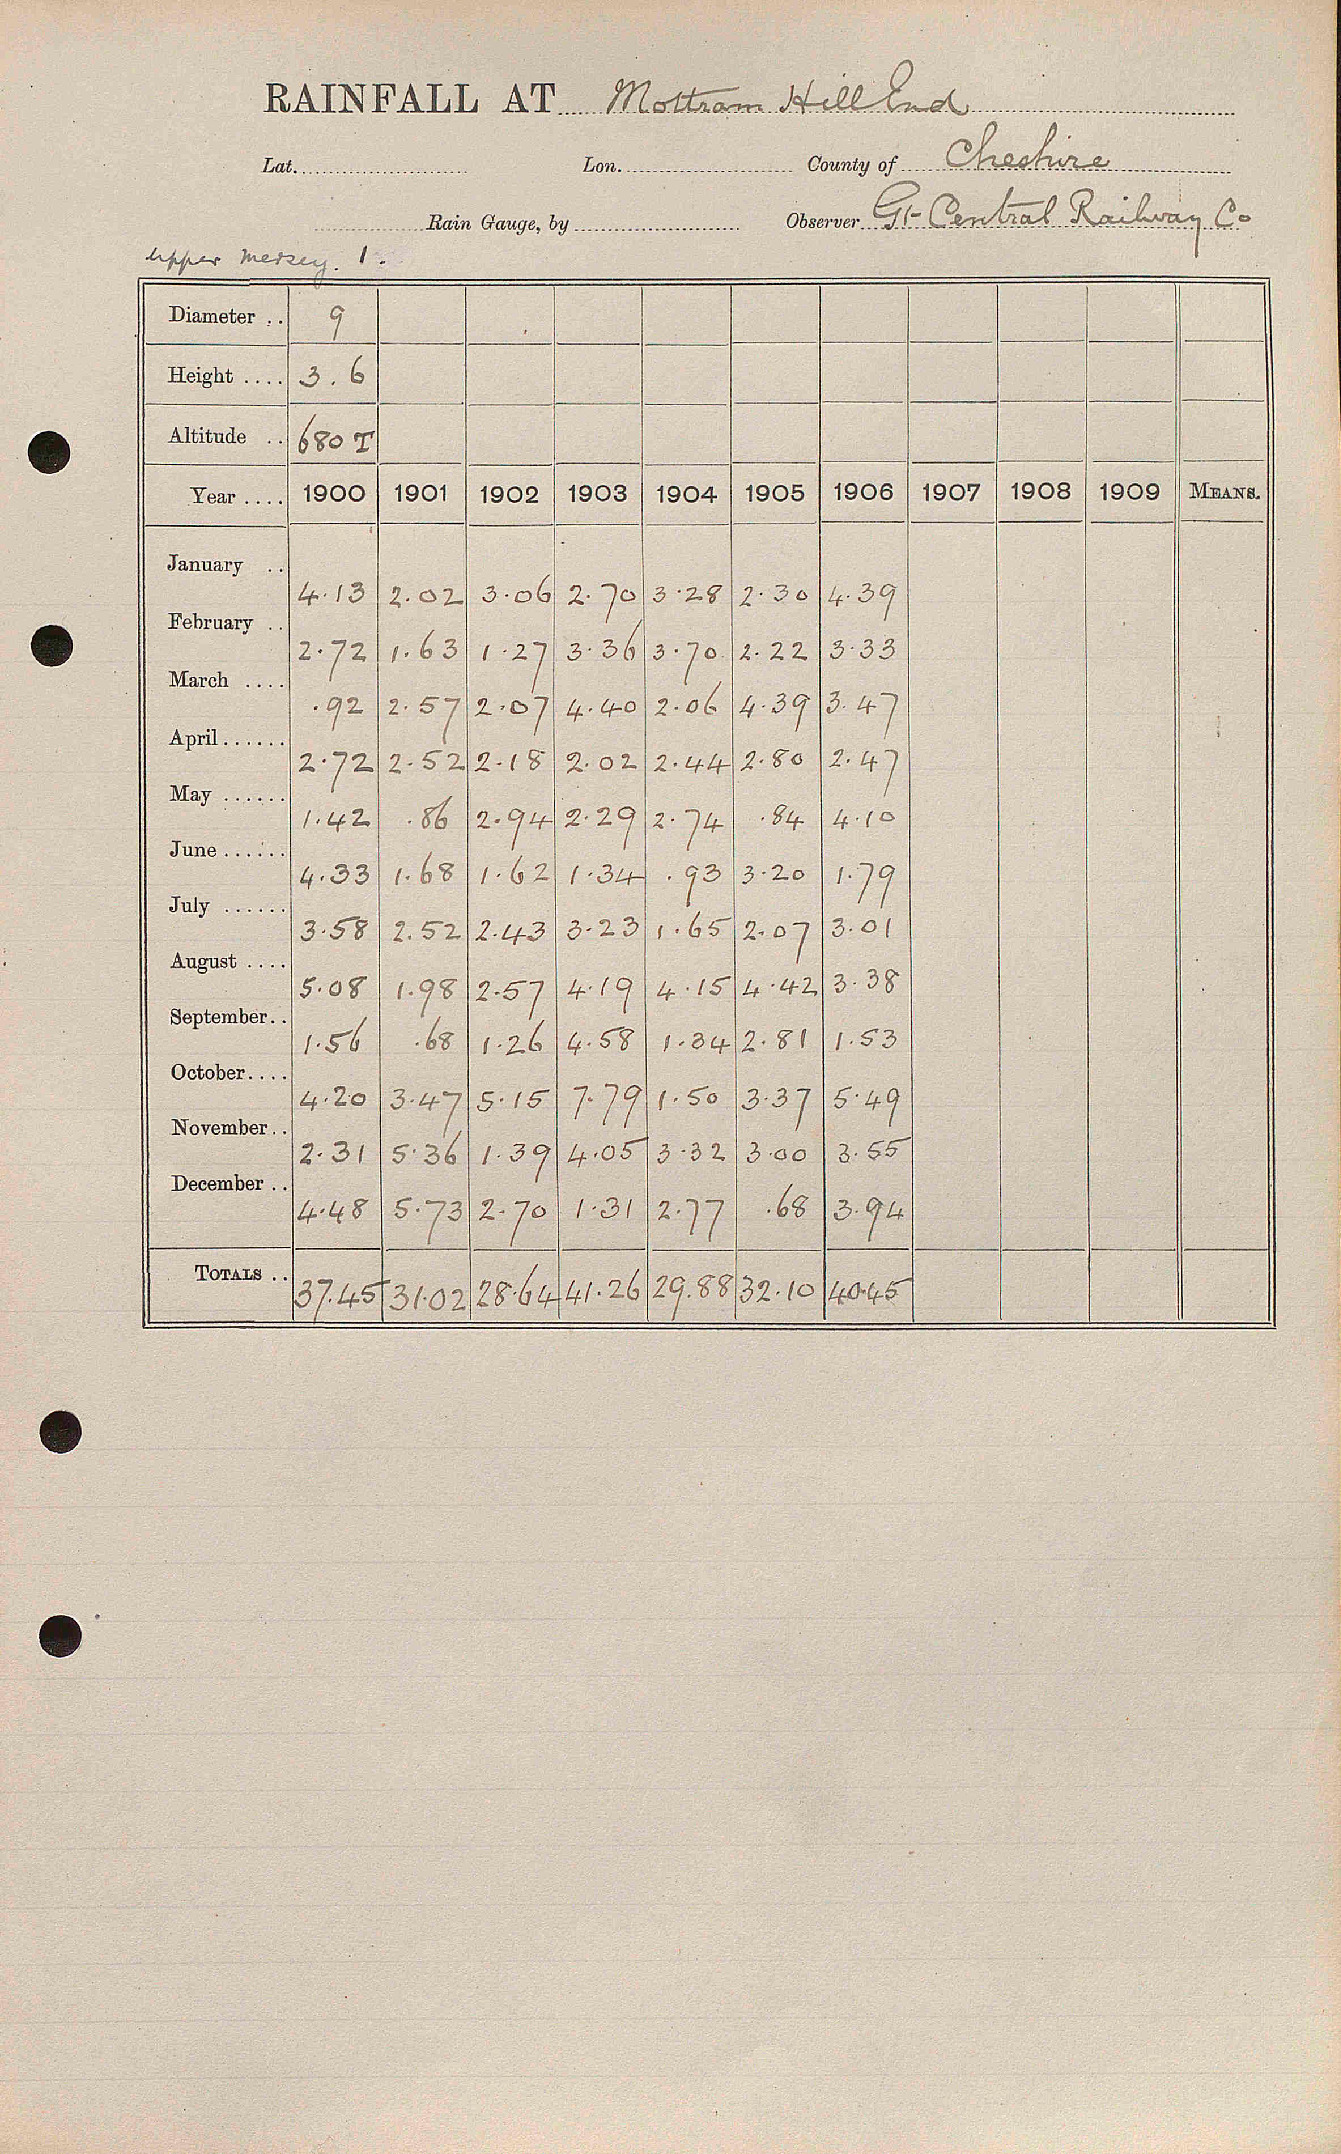 RAINFALL AT Mottram Hill End
Lat. Lon. County of Cheshire
Rain Gauge, by Observer Gt Central Railway Co
Upper Mersey. 1.
Diameter .. 9
Height .... 3.6
Altitude .. 680 T
Year .... 1900 1901 1902 1903 1904 1905 1906 1907 1908 1909 MEANS.
January .. 4.13 2.02 3.06 2.70 3.28 2.30 4.39
February .. 2.72 1.63 1.27 3.36 3.70 2.22 3.33
March .... .92 2.57 2.07 4.40 2.06 4.39 3.47
April...... 2.72 2.52 2.18 2.02 2.44 2.80 2.47
May ...... 1.42 .86 2.94 2.29 2.74 .84 4.10
June ...... 4.33 1.68 1.62 1.34 .93 3.20 1.79
July ...... 3.58 2.52 2.43 3.23 1.65 2.07 3.01
August .... 5.08 1.98 2.57 4.19 4.15 4.42 3.38
September.. 1.56 .68 1.26 4.58 1.34 2.81 1.53
October.... 4.20 3.47 5.15 7.79 1.50 3.37 5.49
November.. 2.31 5.36 1.39 4.05 3.32 3.00 3.55
December .. 4.48 5.73 2.70 1.31 2.77 .68 3.94
TOTALS .. 37.45 31.02 28.64 41.26 29.88 32.10 40.45